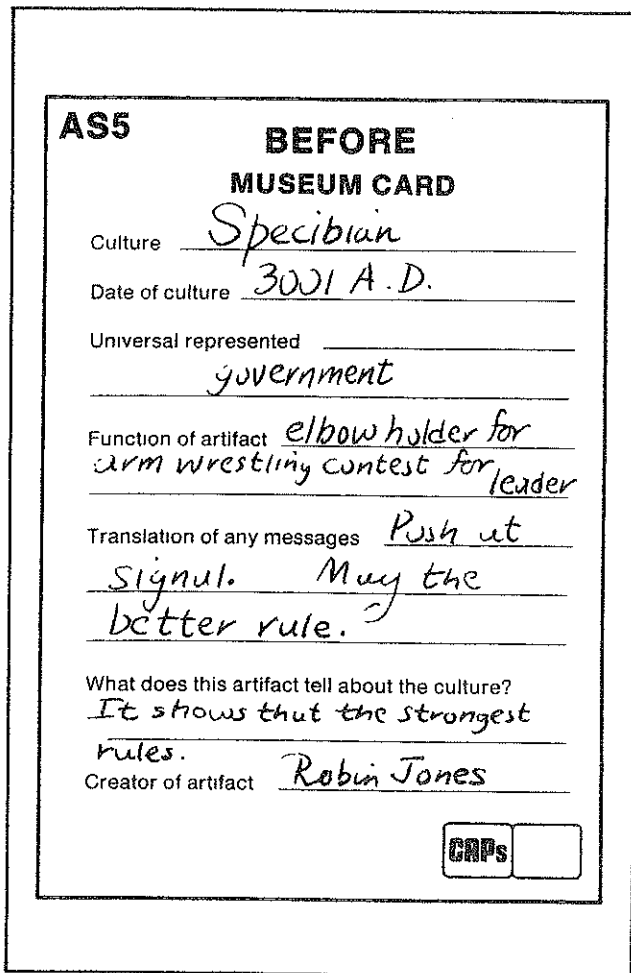 AS5
BEFORE
MUSEUM CARD
Culture Specibian
Date of culture 3001 A.D.
Universal represented
government
Function of artifact elbow holder for
arm wrestling contest for leader
Translation of any messages Push at
signal. May the
better rule.
What does this artifact tell about the culture?
It shows that the strongest
rules.
Creator of artifact Robin Jones
CAPs